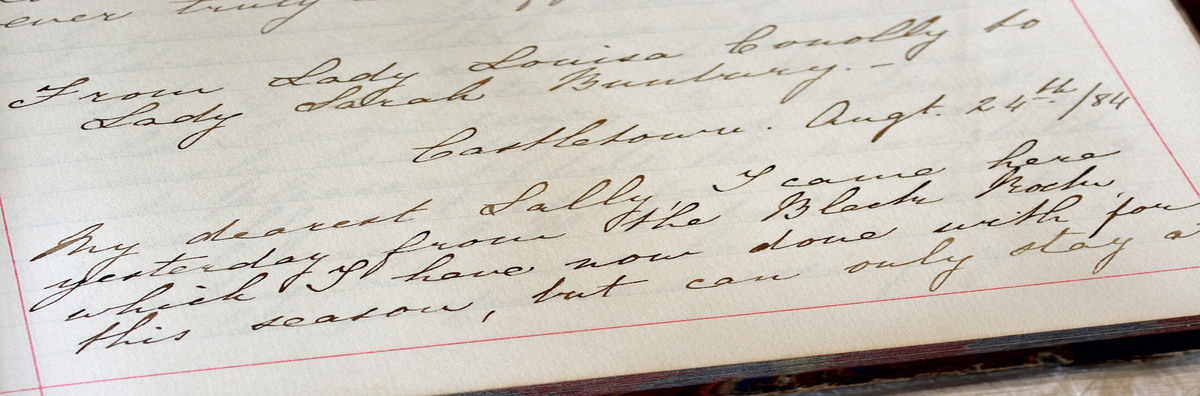 ever truly
From Lady Louisa Conolly to
Lady Sarah Bunbury. –
Castletown. Augt. 24th/84
My dearest Sally, I came here
yesterday from the Black Rock,
which I have now done with for
this season, but can only stay a